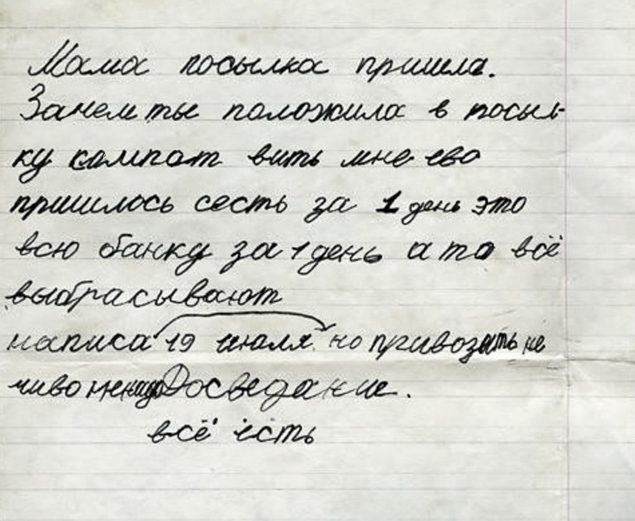 Мама посылка пришла.
Зачем ты положила в посыл-
ку кампот вить мне ево
пришлось сесть за 1 день это
всю банку за 1 день а то всё
выбрасывают
написа 19 июля но привозить не
чиво Досведание.
всё есть